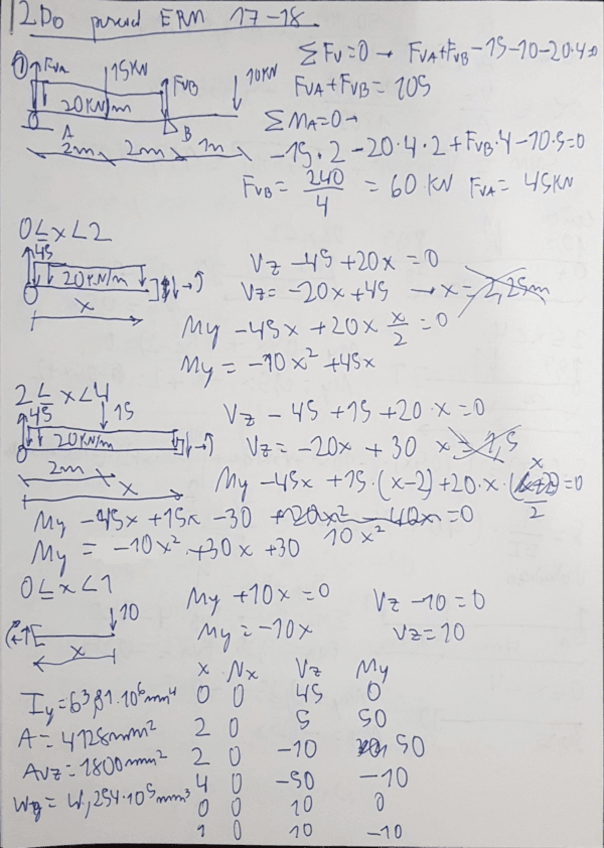 2Do parcial ERM 17-18
① FVA 15KN FVB 10KN
20KN/m
A B
2m 2m 1m
ΣFv=0 → FVA+FVB-15-10-20·4=0
FVA+FVB = 105
ΣMA=0→
-15·2-20·4·2+FVB·4-10·5=0
FVB = 240/4 = 60 KN FVA = 45KN
0≤x<2
45
20KN/m
x
Vz -45 +20x = 0
Vz = -20x+45 → x = 2,25m
My -45x +20x x/2 = 0
My = -10x² +45x
2≤x<4
45 15
20KN/m
2m
x
Vz - 45 +15 +20·x = 0
Vz = -20x + 30 x = 1,5
My -45x +15·(x-2)+20·x·x/2 = 0
My -45x +15x -30 +20x² -40x = 0
10x²
My = -10x² +30x +30
0≤x<1
10
x
My +10x = 0 Vz -10 = 0
My = -10x Vz = 10
x Nx Vz My
0 0 45 0
2 0 5 50
2 0 -10 50
4 0 -50 -10
0 0 10 0
1 0 10 -10
A = 4128mm²
AVz = 1800mm²